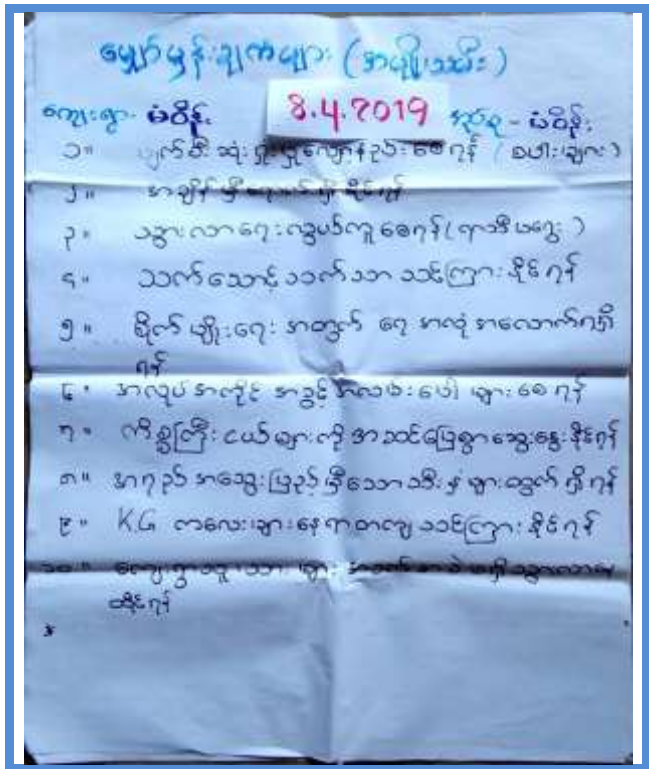 မျှော်မှန်းချက်များ (အမျိုးသမီး)
ကျေးရွာ - မံဝိန်း 8.4.2019 အုပ်စု - မံဝိန်း
၁။ ပျက်စီးဆုံးရှုံးမှုလျော့နည်းစေရန် (စပါးများ)
၂။ အချိန်မှီ ရရှိနိုင်ရန်
၃။ သွားလာရေးလွယ်ကူစေရန် (ရာသီမရွေး)
၄။ သက်သောင့်သက်သာ သင်ကြားနိုင်ရန်
၅။ စိုက်ပျိုးရေးအတွက် ရေ အလုံအလောက်ရရှိ
ရန်
၆။ အလုပ်အကိုင် အခွင့်အလမ်းပေါများစေရန်
၇။ ကိစ္စကြီးငယ်များကို အဆင်ပြေစွာဆွေးနွေးနိုင်ရန်
၈။ အရည်အသွေးပြည့်မှီသောသီးနှံများထွက်ရှိရန်
၉။ KG ကလေးများနေရာတကျ သင်ကြားနိုင်ရန်
၁၀။ ကျေးရွာသူသားများ သွားလာနေ
ထိုင်ရန်
*